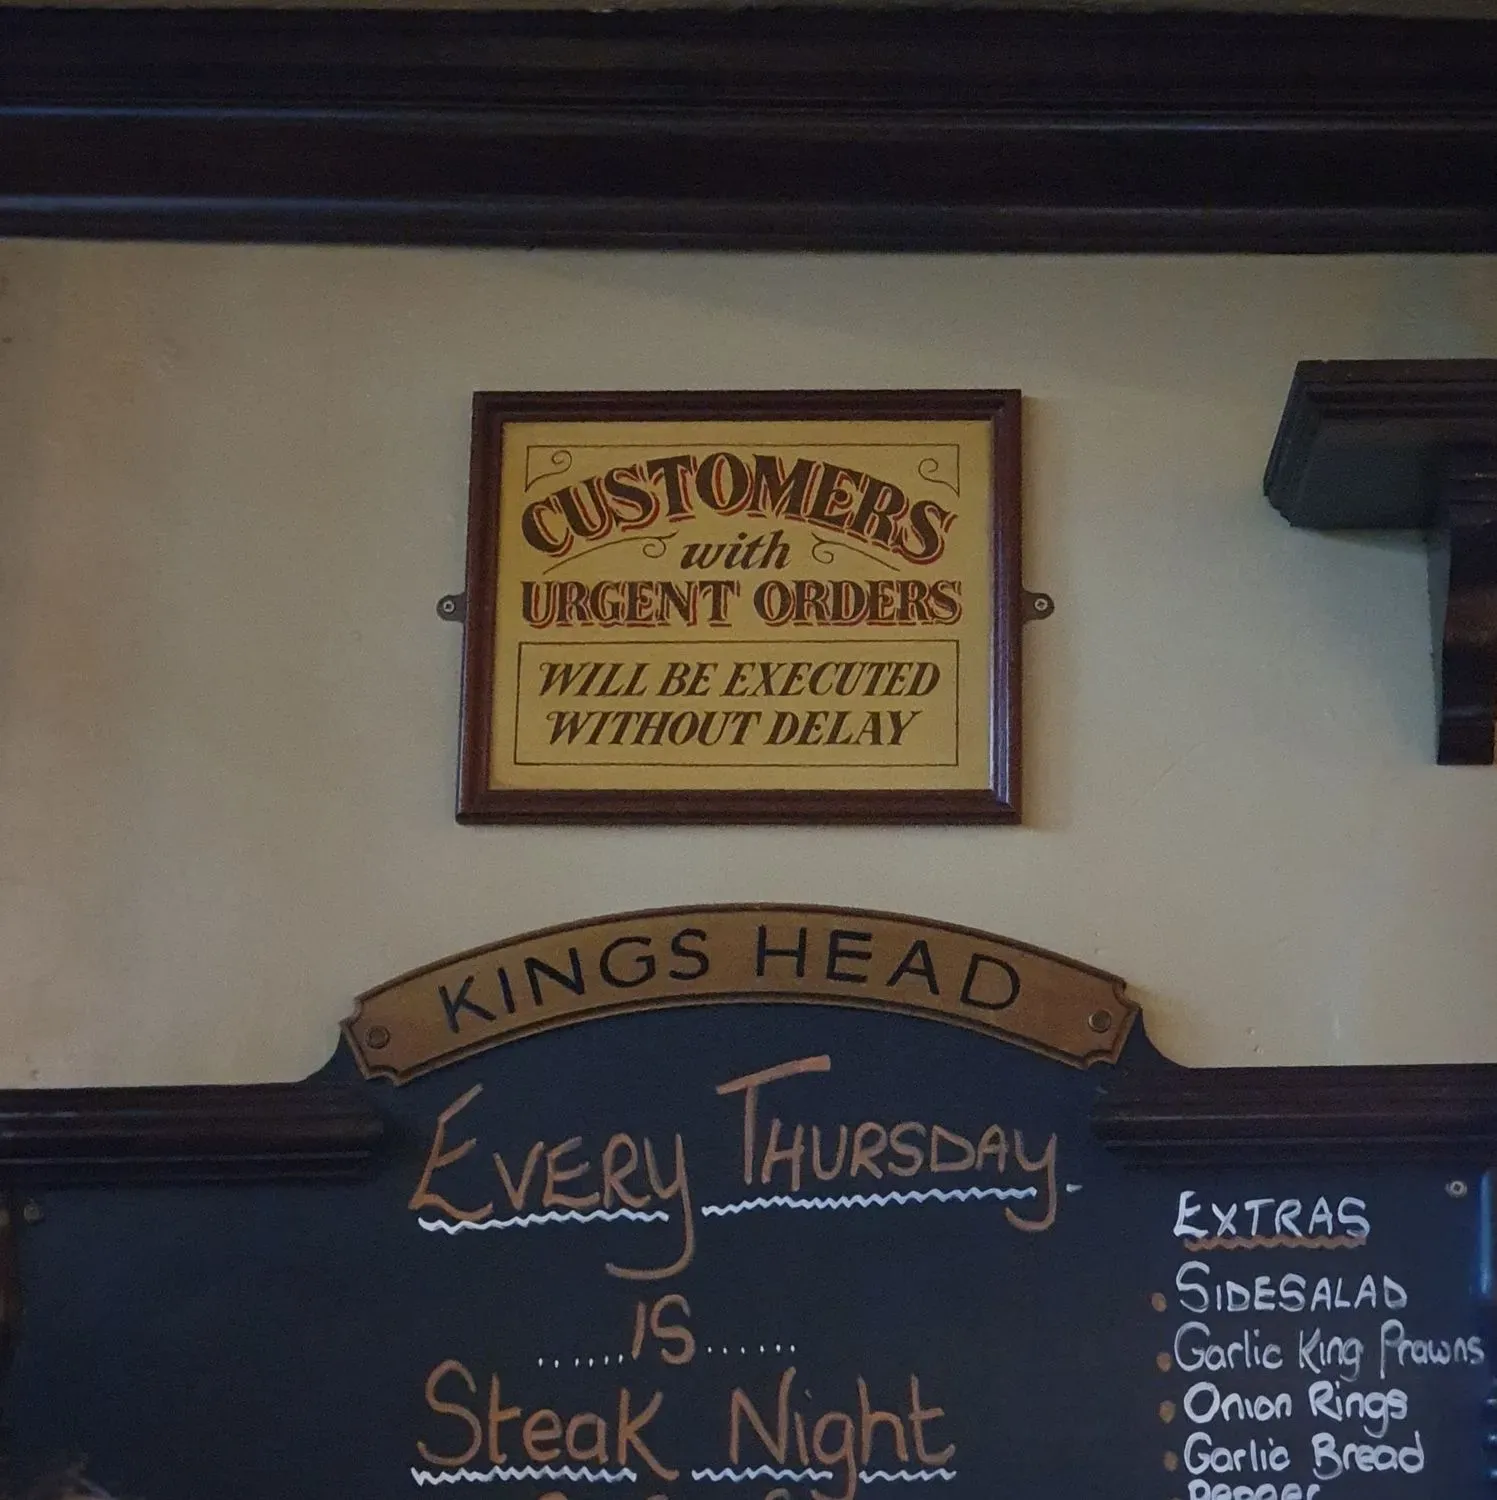 CUSTOMERS
with
URGENT ORDERS
WILL BE EXECUTED
WITHOUT DELAY
KINGS HEAD
EVERY THURSDAY.
......IS......
Steak Night
EXTRAS
• SIDESALAD
• Garlic King Prawns
• Onion Rings
• Garlic Bread